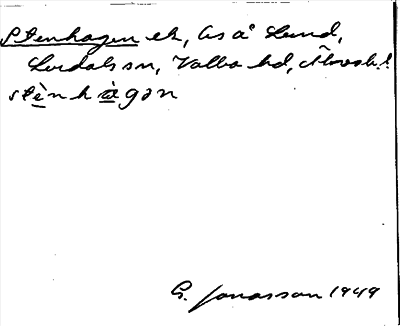 Stenhagen eh, Åså Lund,
Lurdals sn, Valbo hd, Älvsb. l.
stènhàgən
G. Jonasson 1949